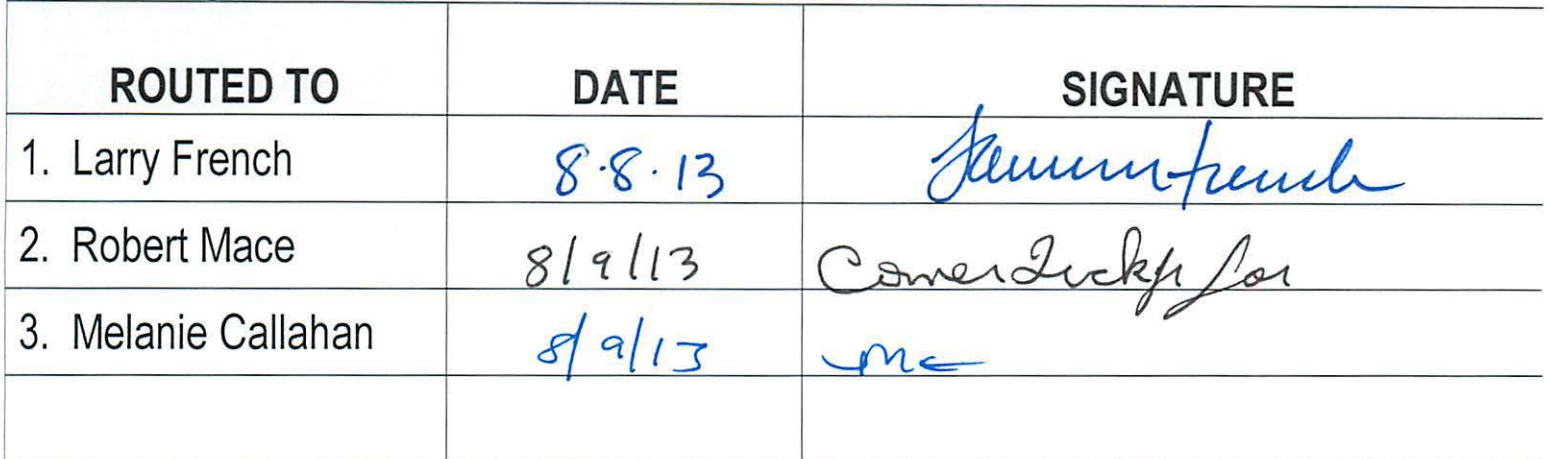 ROUTED TO DATE SIGNATURE
1. Larry French 8.8.13
2. Robert Mace 8/9/13 Comer Tuck for
3. Melanie Callahan 8/9/13 MC